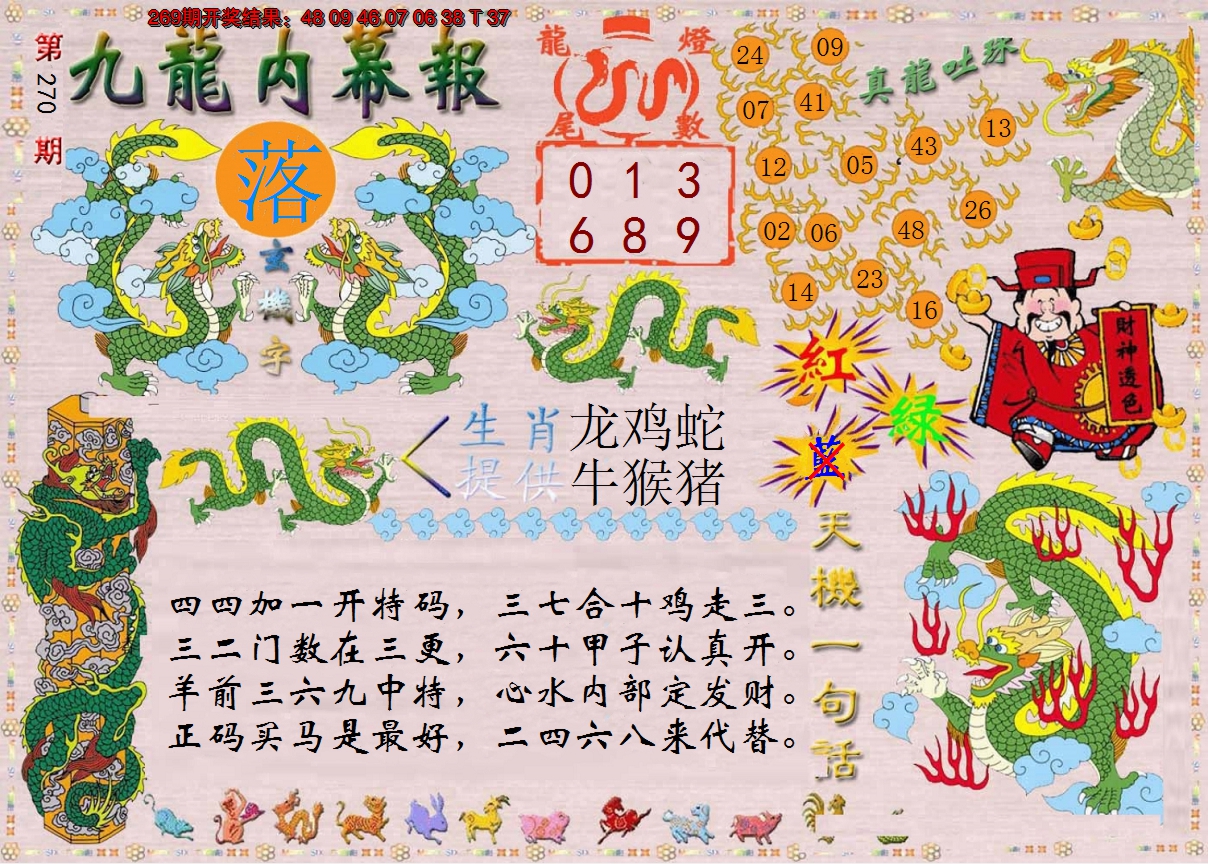 269期开奖结果：48 09 46 07 06 38 T 37
第270期
九龍内幕報
落
玄機字
龍燈尾數
0 1 3
6 8 9
真龍吐珠
24 09
07 41
12 05 43 13
02 06 48 26
14 23 16
財神透色
紅
綠
藍
生肖提供
龙鸡蛇
牛猴猪
天機一句話
四四加一开特码，三七合十鸡走三。
三二门数在三更，六十甲子认真开。
羊前三六九中特，心水内部定发财。
正码买马是最好，二四六八来代替。